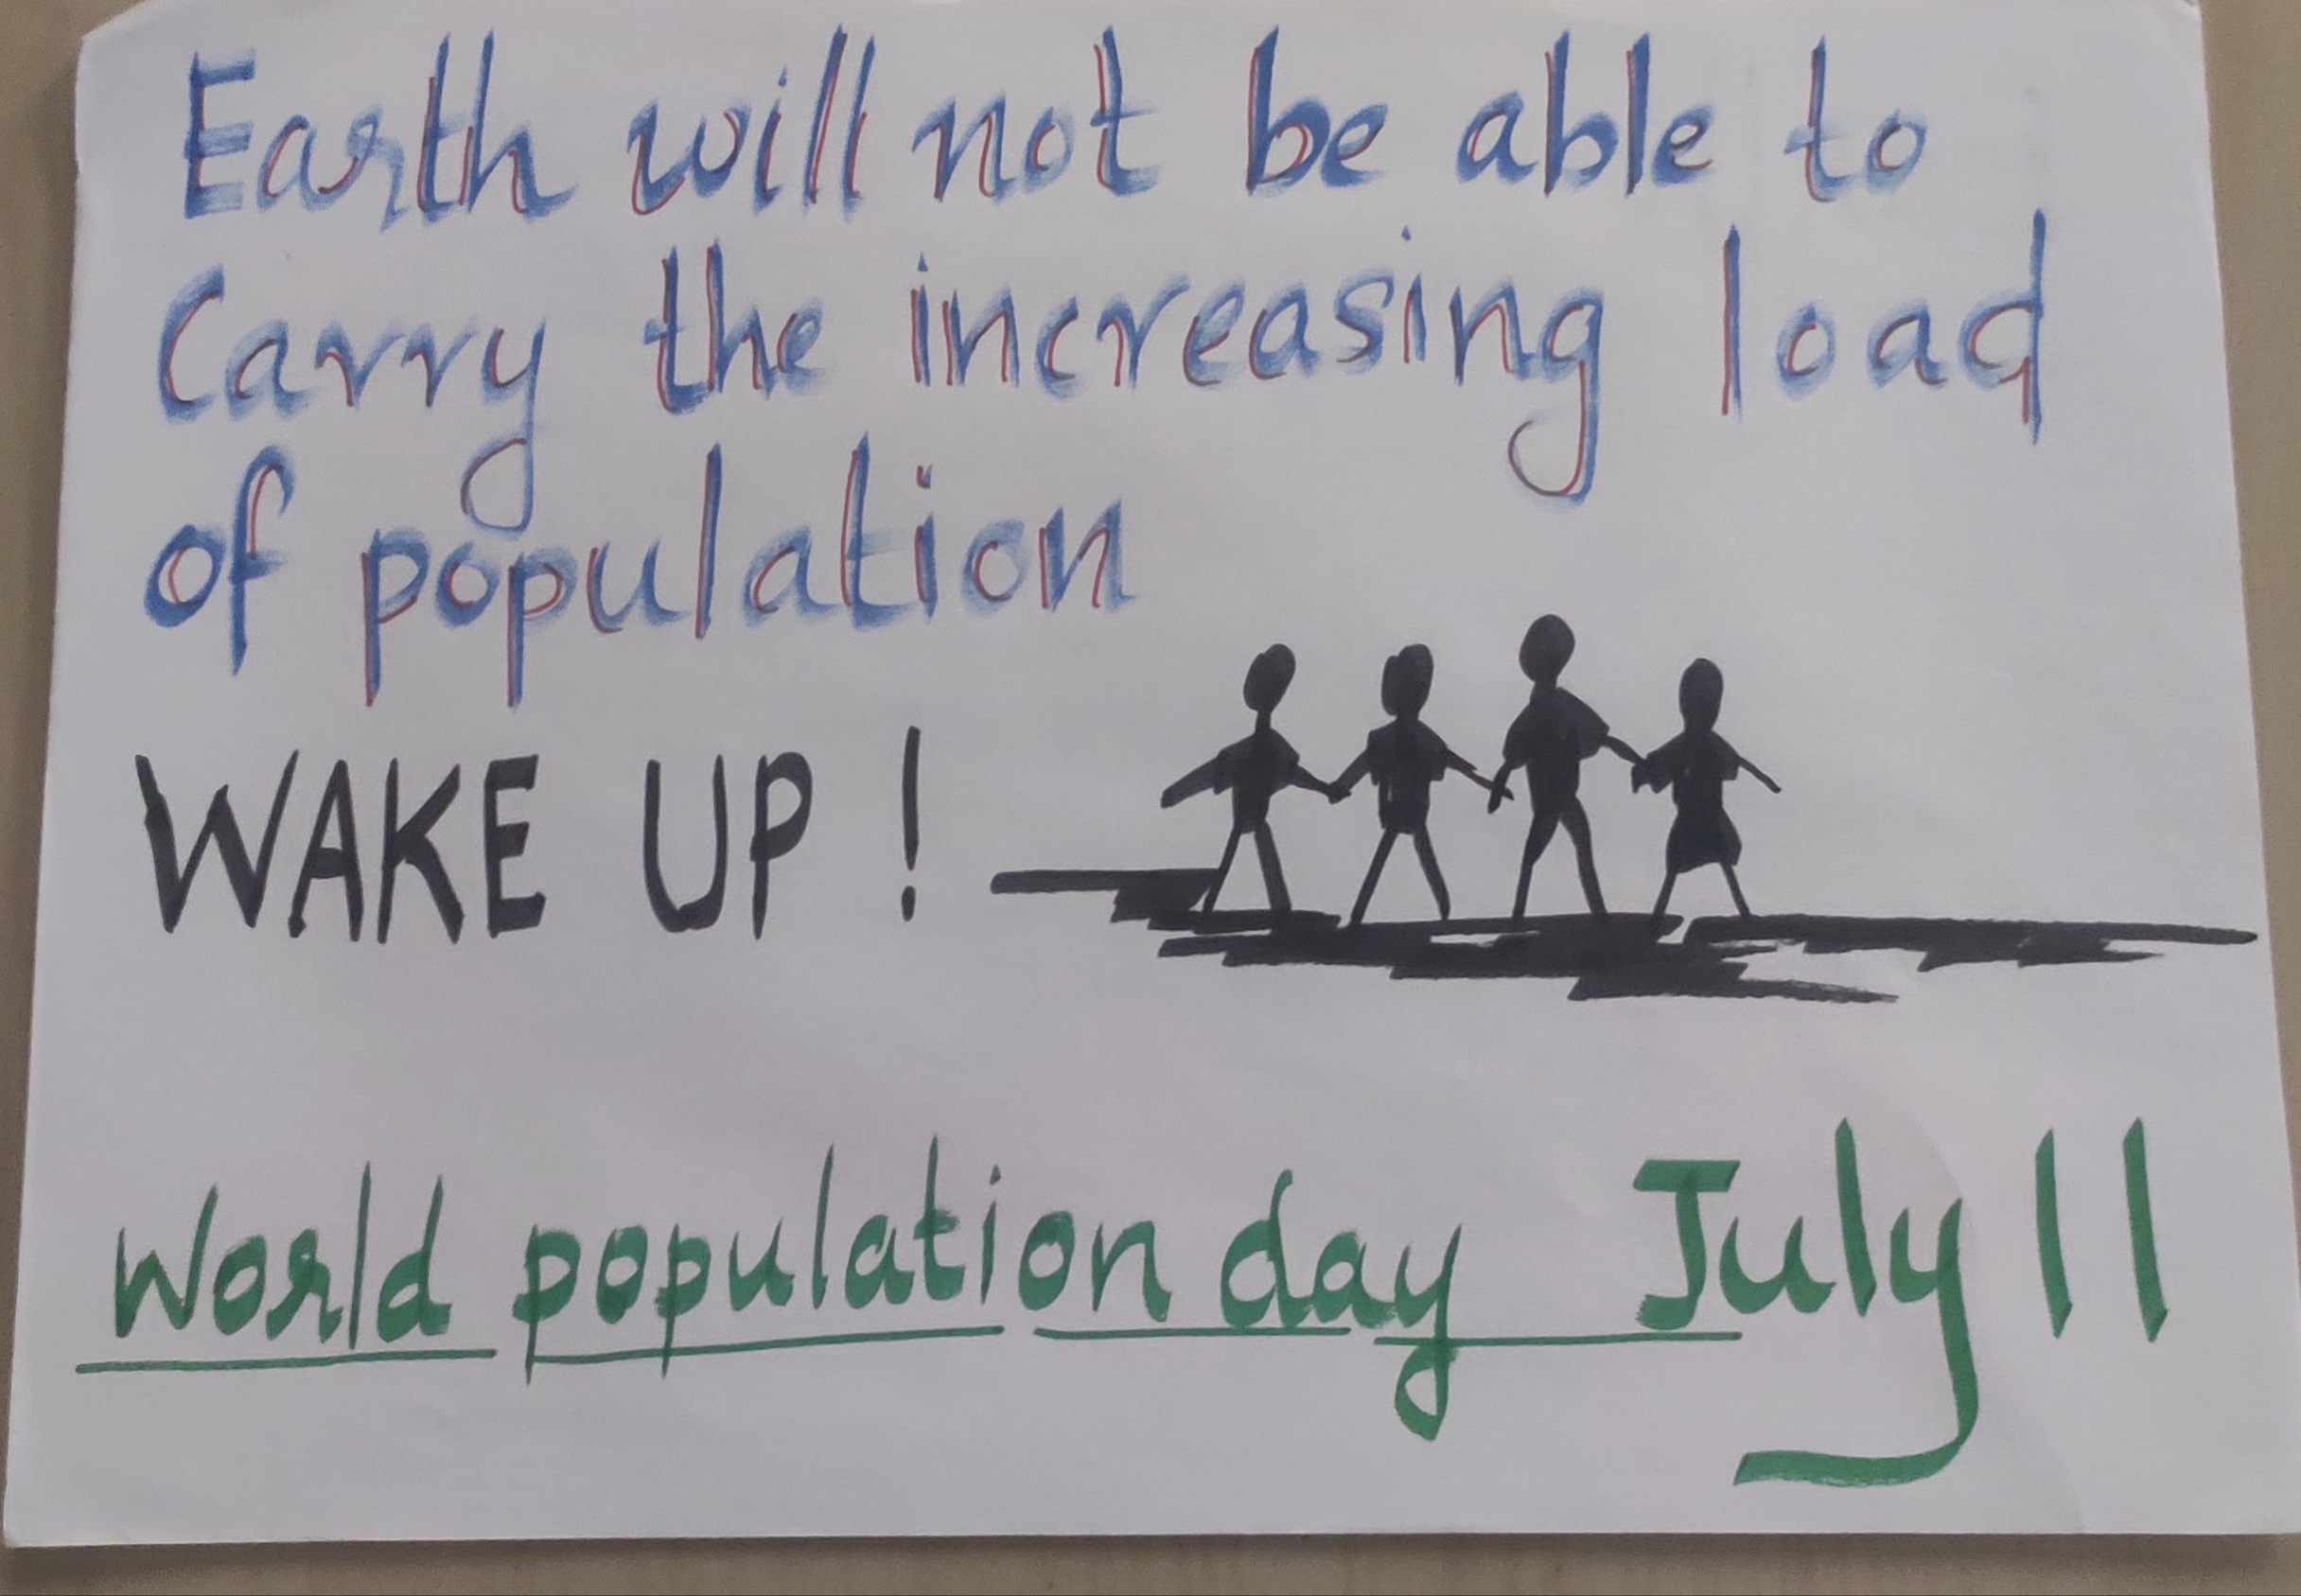 Earth will not be able to
Carry the increasing load
of population
WAKE UP !
World population day July 11